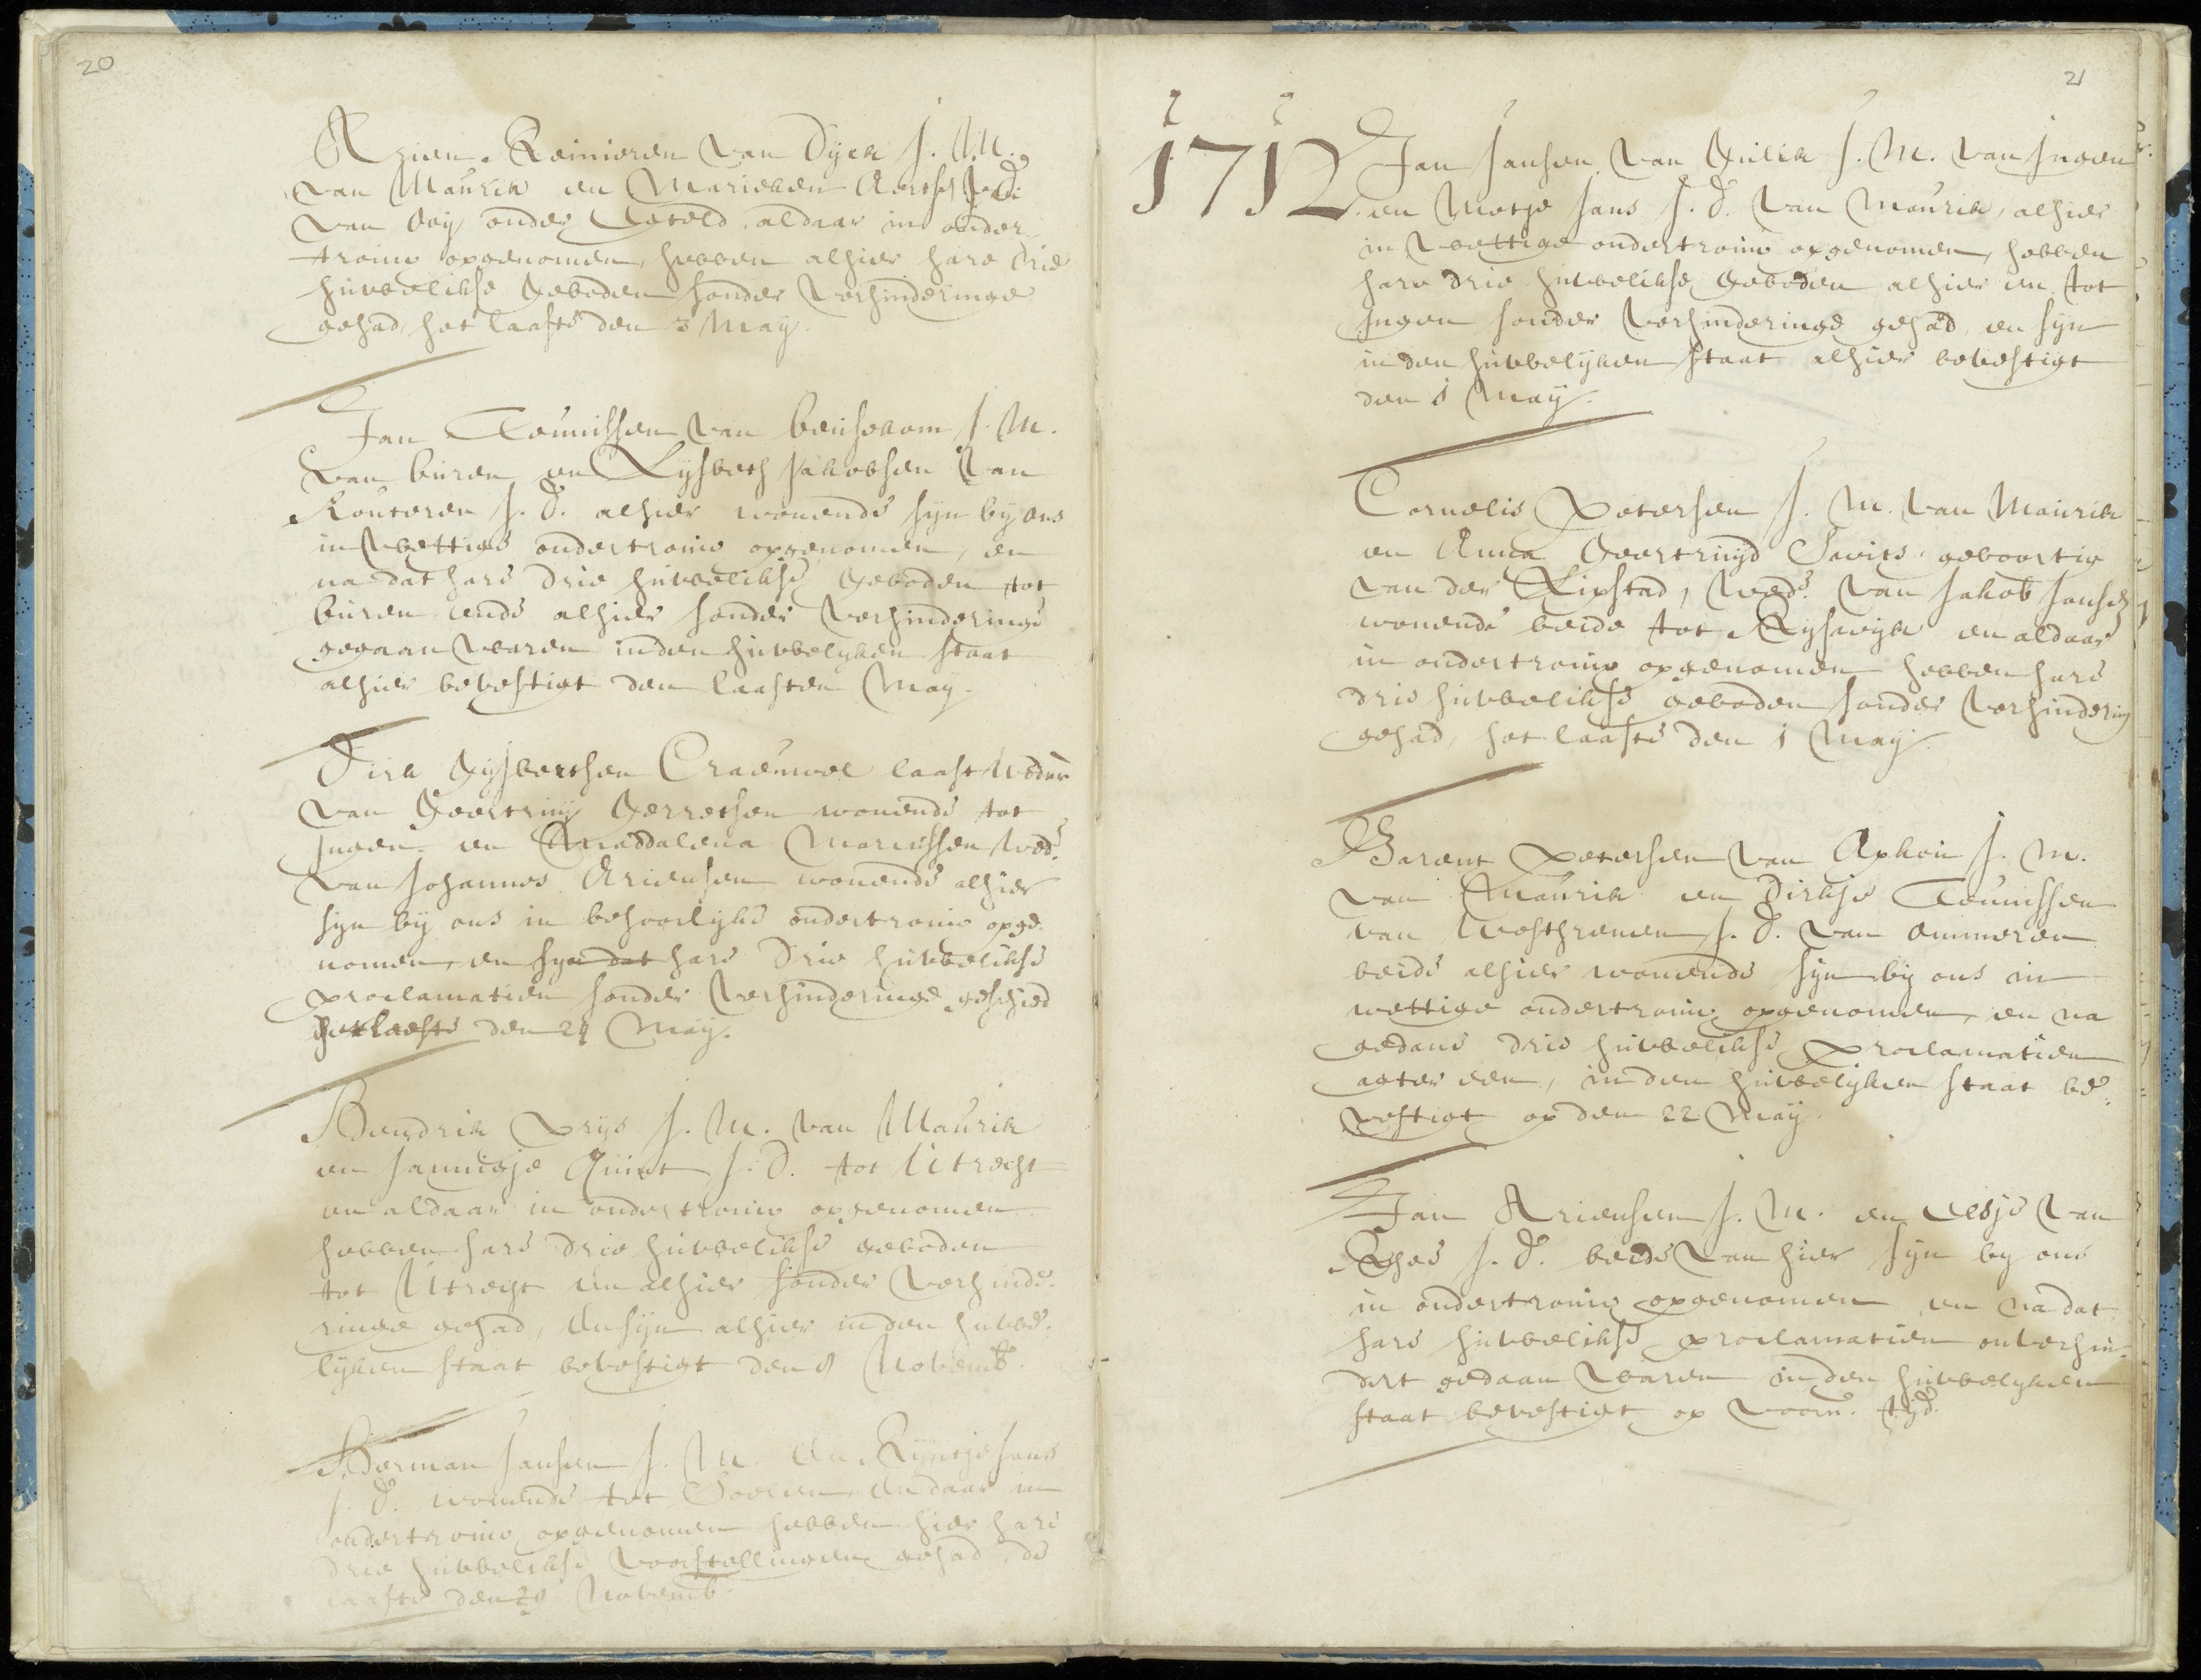 20
Arien Reinieren van Dyck J. M.
van Maurik en Marieken Aertse J. D.
van Ooy onder Eteld aldaar in onder-
trouw opgenomen, hebben alhier hare drie
huwelikse geboden sonder verhinderinge
gehad, het laaste den 3 May.
Jan Teunissen van Beusekom J. M.
van Buren en Lysbeth Jakobsen van
Kouteren J. D. alhier wonende syn by ons
in wettige ondertrouw opgenomen, en
na dat hare drie huwelikse geboden tot
Buren ende alhier sonder verhinderinge
gegaan waren in den huwelyken staat
alhier bevestigt den laasten May.
Dirk Gysbertsen Craeuwel laast weduwr
van Geertruy Gerretsen wonende tot
Ingen en Maddalena Marcussen wede.
van Johannes Ariensen wonende alhier
syn by ons in behoorlyke ondertrouw opge-
nomen, en syn dat hare drie huwelikse
proclamatien sonder verhinderinge geschied
het laeste den 29 May.
Hendrik Prys J. M. van Maurik
en Jannigje Quint J. D. tot Utrecht
en aldaar in ondertrouw opgenomen
hebben hare drie huwelikse geboden
tot Utrecht en alhier sonder verhinde-
ringe gehad, en syn alhier in den huwe-
lyken staat bevestigt den 8 Novemb.
Herman Jansen J. M. en Ryntje Jans
J. D. wonende tot Soelen en daar in
ondertrouw opgenomen hebben hier hare
drie huwelikse voorstellingen gehad, de
laaste den 20 Novemb.
21
1712
Jan Jansen van Gulik J. M. van Ingen
en Metje Jans J. D. van Maurik, alhier
in wettige ondertrouw opgenomen, hebben
hare drie huwelikse geboden alhier en tot
Ingen sonder verhinderinge gehad en syn
in den huwelyken staat alhier bevestigt
den 1 May.
Cornelis Petersen J. M. van Maurik
en Anna Geertruyd Savits geboortig
van der Lipstad, wede. van Jakob Jansen
wonende beide tot Ryswyk en aldaar
in ondertrouw opgenomen hebben hare
drie huwelikse geboden sonder verhindering
gehad, het laaste den 1 May.
Barent Petersen van Aphou J. M.
van Maurik en Dirkje Teunissen
van Westhrenen J. D. van Ommeren
beide alhier wonende syn by ons in
wettige ondertrouw opgenomen, en na
gedane drie huwelikse proclamatien
agter een, in den huwelyken staat be-
vestigt op den 22 May.
Jan Ariensen J. M. en Celsje van
Rhee J. D. beide van hier syn by ons
in ondertrouw opgenomen en na dat
hare huwelikse proclamatien onverhin-
dert gedaan waren in den huwelyken
staat bevestigt op voorn. tyd.